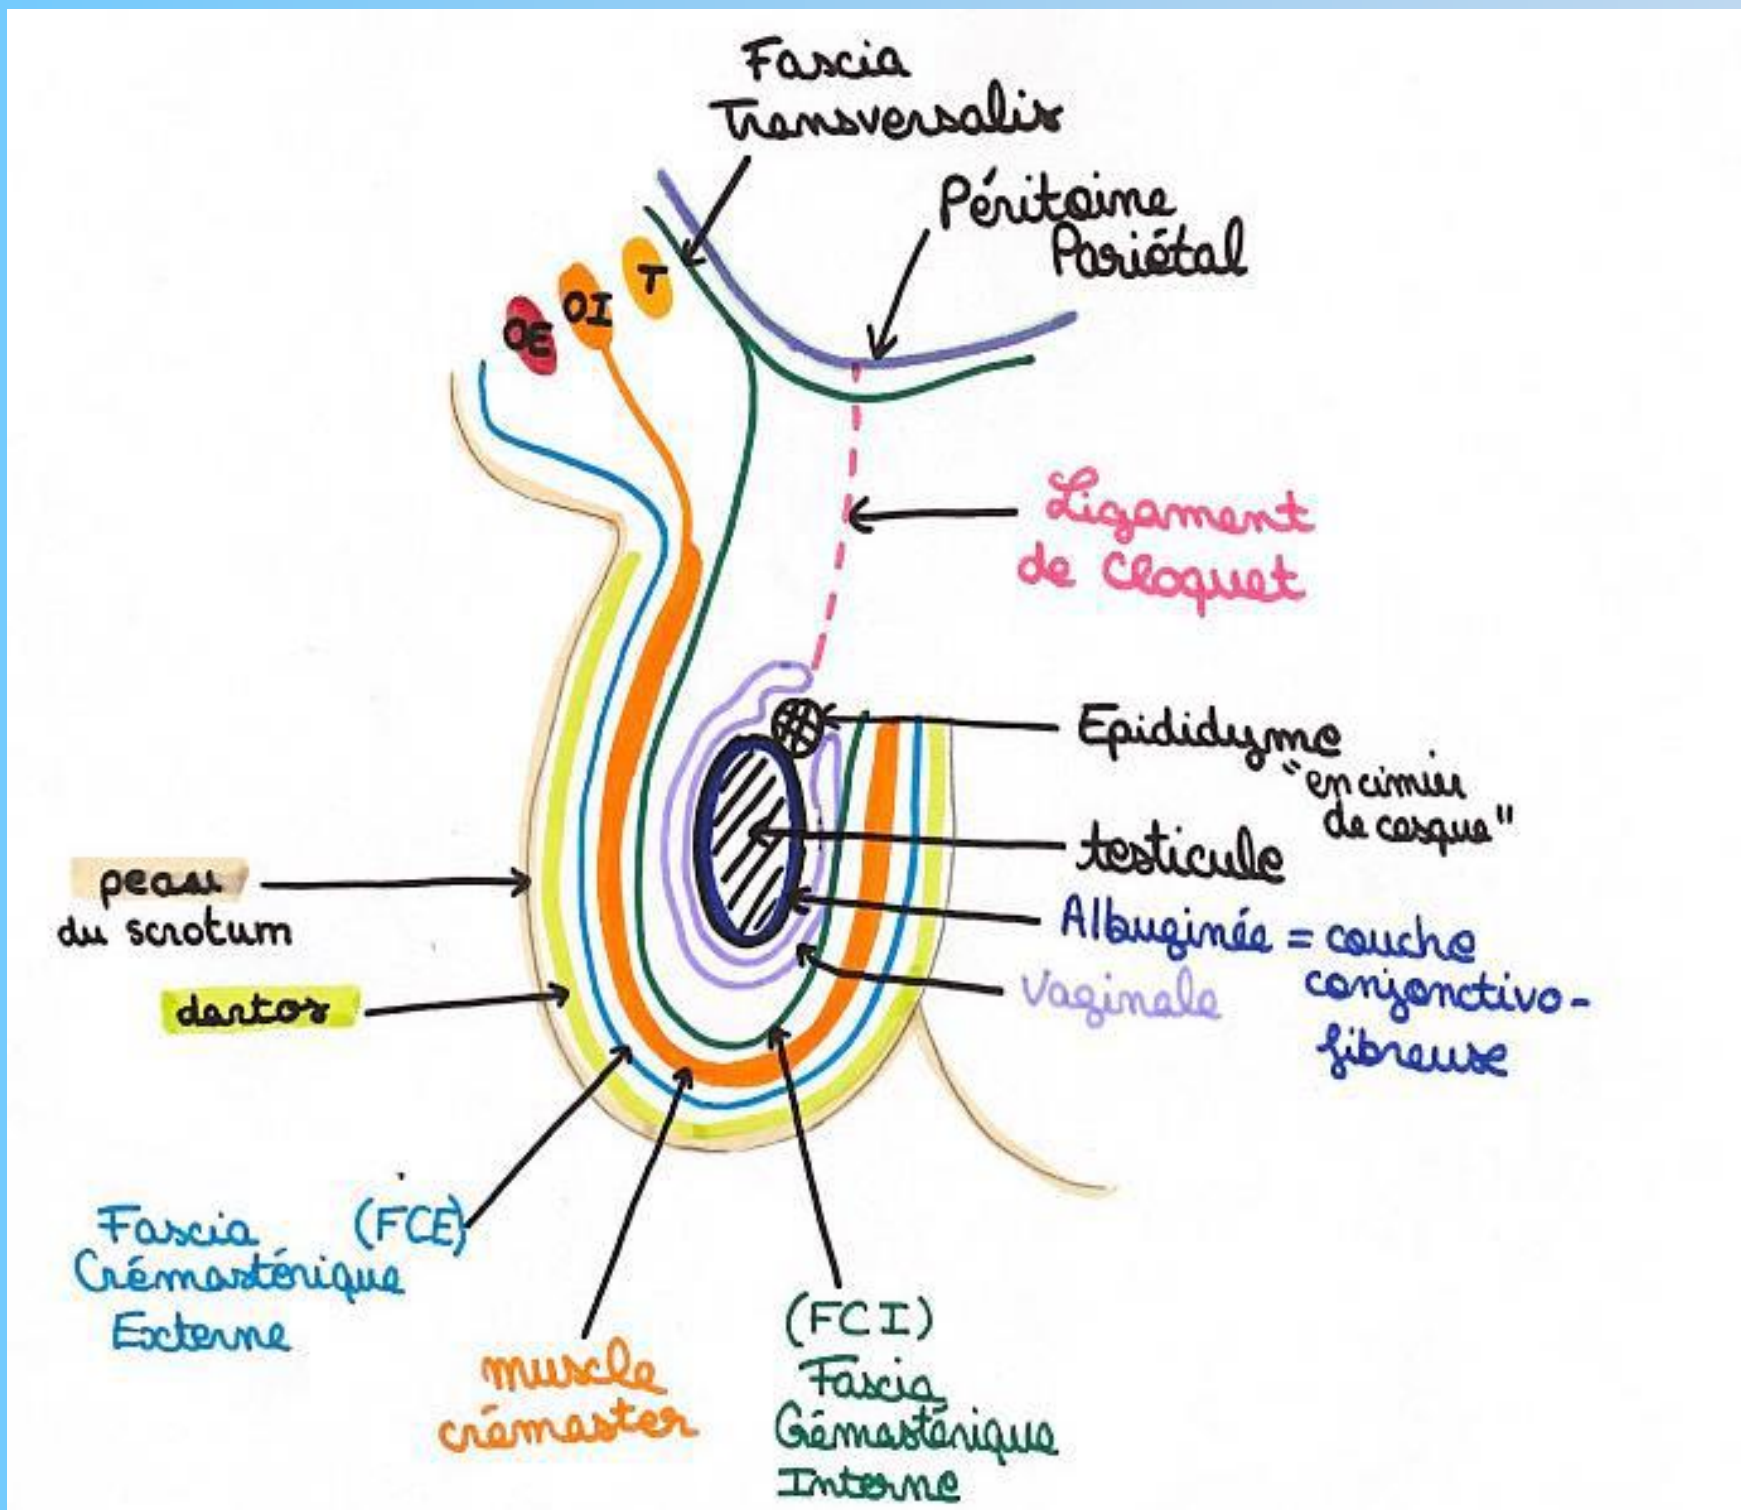 Fascia
Transversalis
Péritoine
Pariétal
T
OI
OE
Ligament
de Cloquet
Epididyme
"en cimier
de casque"
testicule
peau
du scrotum
Albuginée = couche
conjonctivo-
fibreuse
Vaginale
dartos
Fascia (FCE)
Crémastérique
Externe
muscle
crémaster
(FCI)
Fascia
Crémastérique
Interne